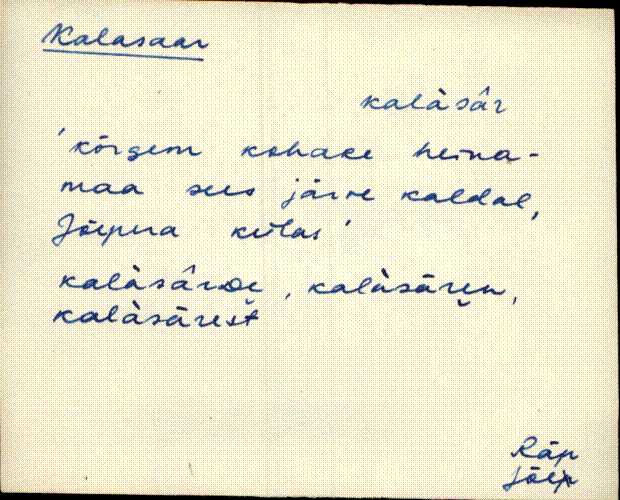 Kalasaar
kalàsâr
'kõrgem kohake heina-
maa sees järve kaldal,
Jõepera külas'
kalàsârde, kalàsāren,
kalàsārest
Räp
Jõep